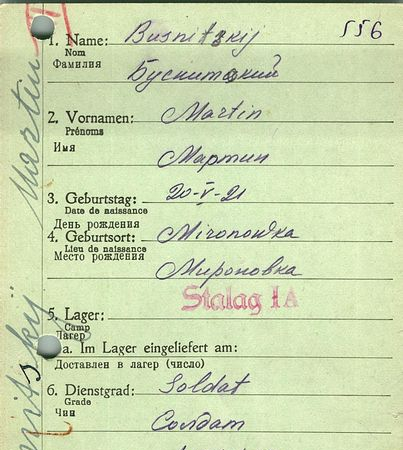 556
1. Name: Busnitzkij
Nom
Фамилия Буснитзкий
2. Vornamen: Martin
Prénoms
Имя Мартин
3. Geburtstag: 20-V-21
Date de naissance
День рождения
4. Geburtsort: Mironowka
Lieu de naissance
Место рождения Мироновка
Stalag IA
5. Lager:
Camp
Лагерь
a. Im Lager eingeliefert am:
Доставлен в лагерь (число)
6. Dienstgrad: Soldat
Grade
Чин Солдат
Martin